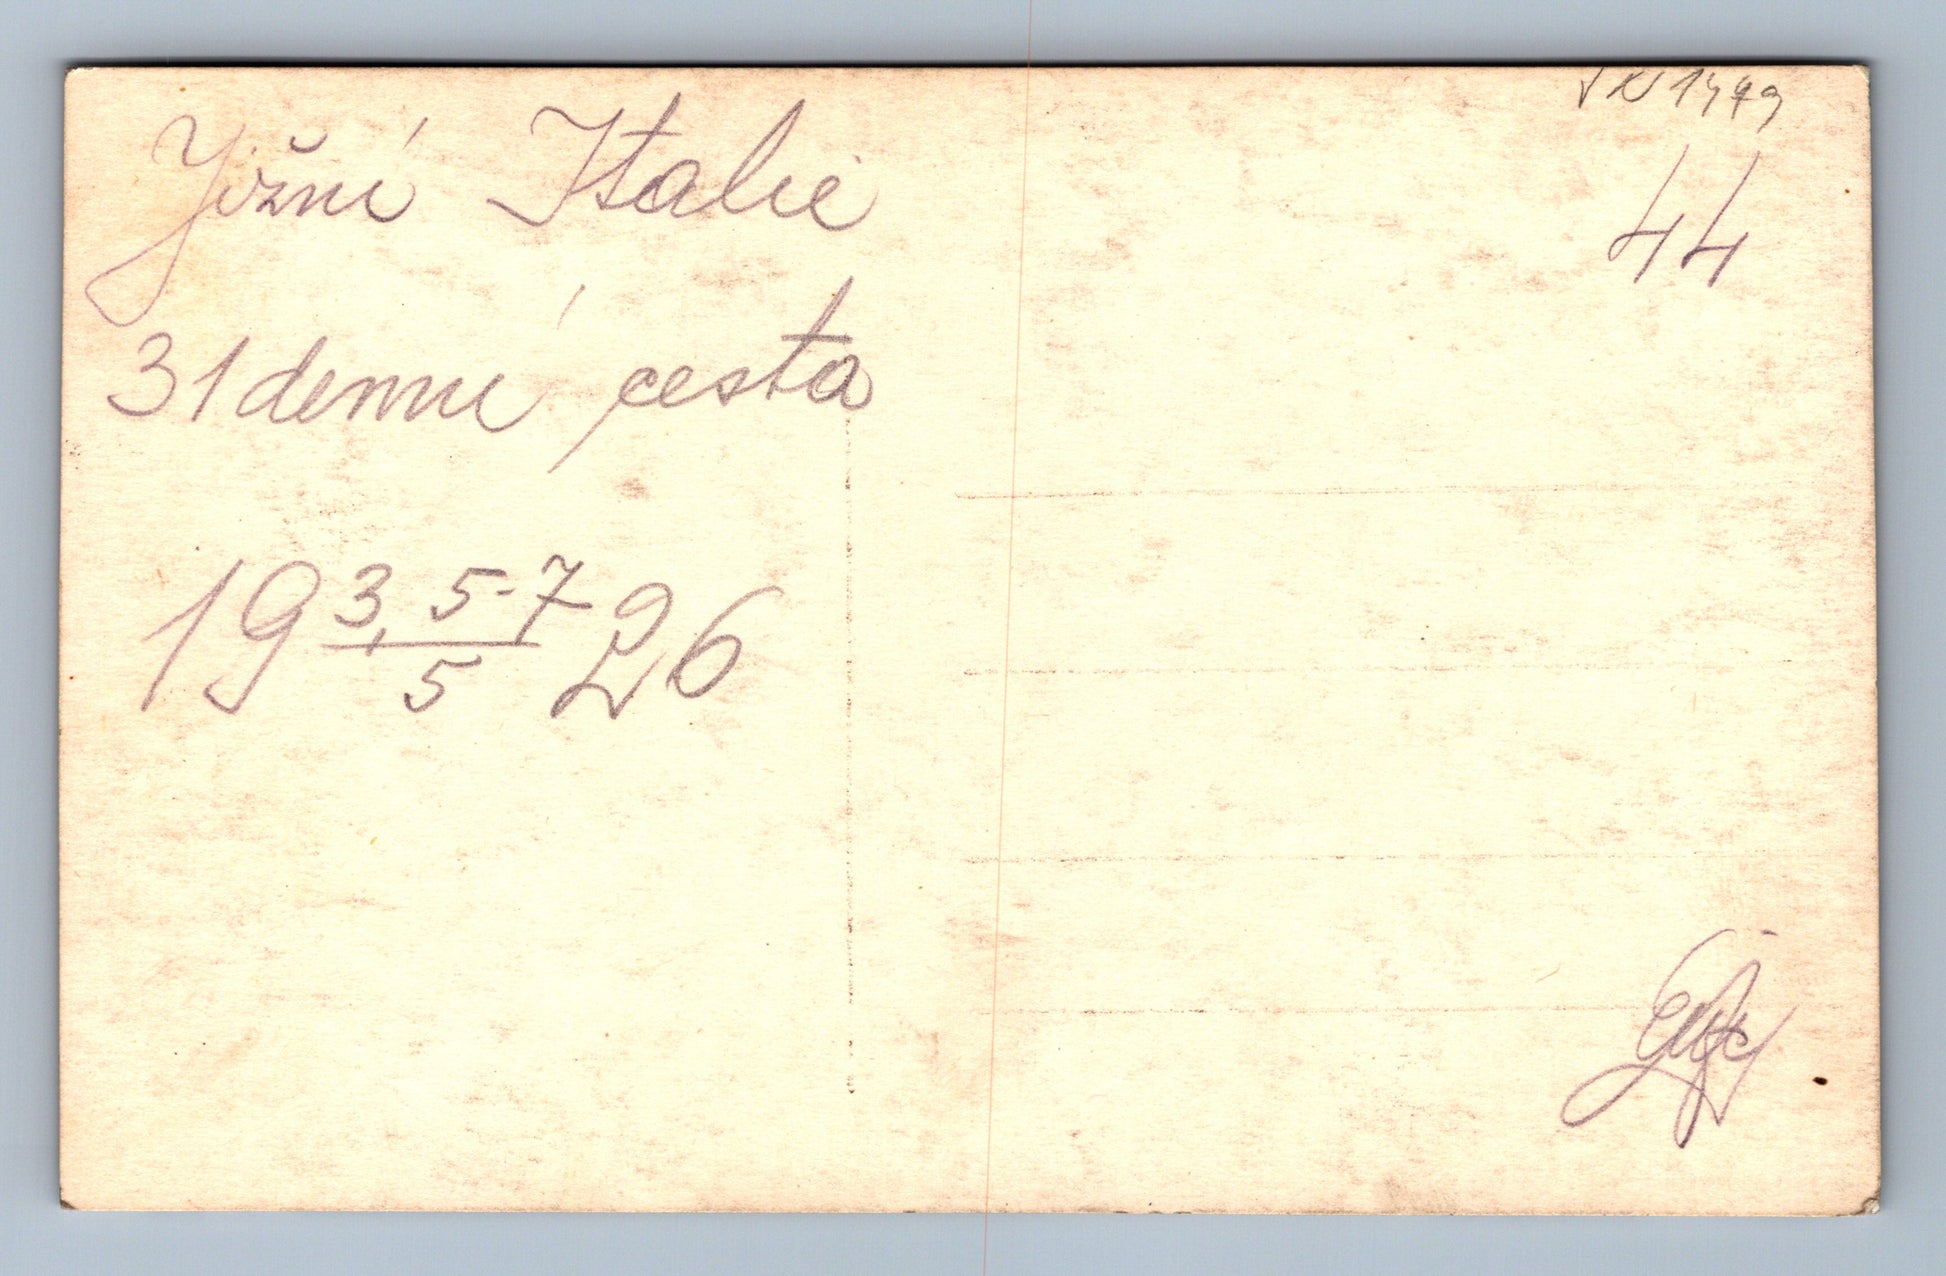 Jižní Italie
31denní cesta
19 3, 5-7/5 26
44